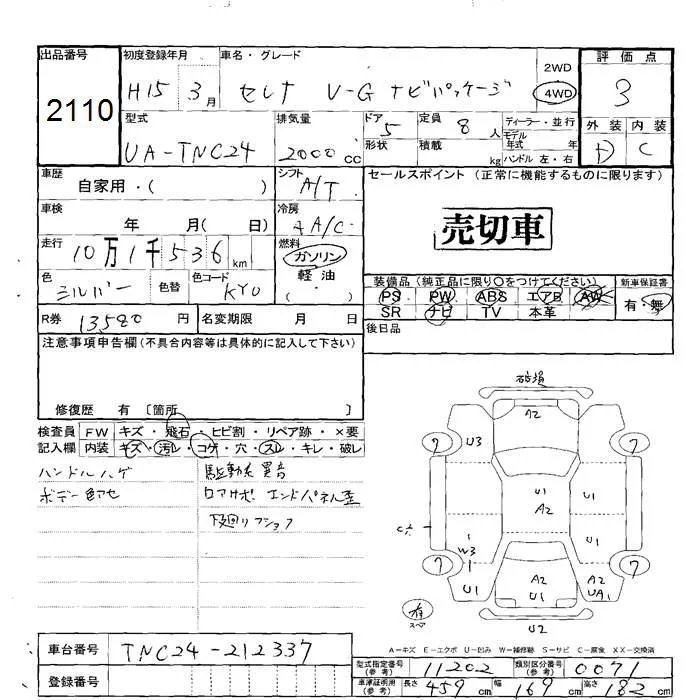 出品番号
2110
初度登録年月
H15 3月
車名・グレード
セレナ V-G ナビパッケージ
2WD
4WD
評価点
3
外装 内装
D C
型式
UA-TNC24
排気量
2000cc
ドア
5
形状
定員
8人
積載
kg
ディーラー・並行
モデル
年式 年
ハンドル 左・右
車歴
自家用・( )
シフト
A/T
車検
年 月( 日)
冷房
AA/C
走行
10万1千536km
燃料
ガソリン
軽油
( )
色
シルバー
色替
色コード
KY0
R券 13580円
名変期限 月 日
セールスポイント(正常に機能するものに限ります)
売切車
装備品(純正品に限り〇をつけてください)
PS PW ABS エアB AW
SR ナビ TV 本革
新車保証書
有・無
後日品
注意事項申告欄(不具合内容等は具体的に記入して下さい)
修復歴 有 [箇所 ]
検査員
記入欄
FW キズ・飛石・ヒビ割・リペア跡・×要
内装 キズ・汚レ・コゲ・穴・スレ・キレ・破レ
ハンドルハゲ
ボデー色アセ
駆動系異音
ロアサポ エンドパネル歪
下廻りフショク
破損
A2
7 U3 7
U1 U1
A2
W3 U1
7 7
U1 A2 A2
U1 UA1
有
スペア
U2
A=キズ E=エクボ U=凹み W=補修跡 S=サビ C=腐食 XX=交換済
車台番号 TNC24-212337
登録番号
型式指定番号
(参考)
11202
類別区分番号
(参考)
0071
車庫証明用
(参考)
長さ 459cm 幅 169cm 高さ 182cm